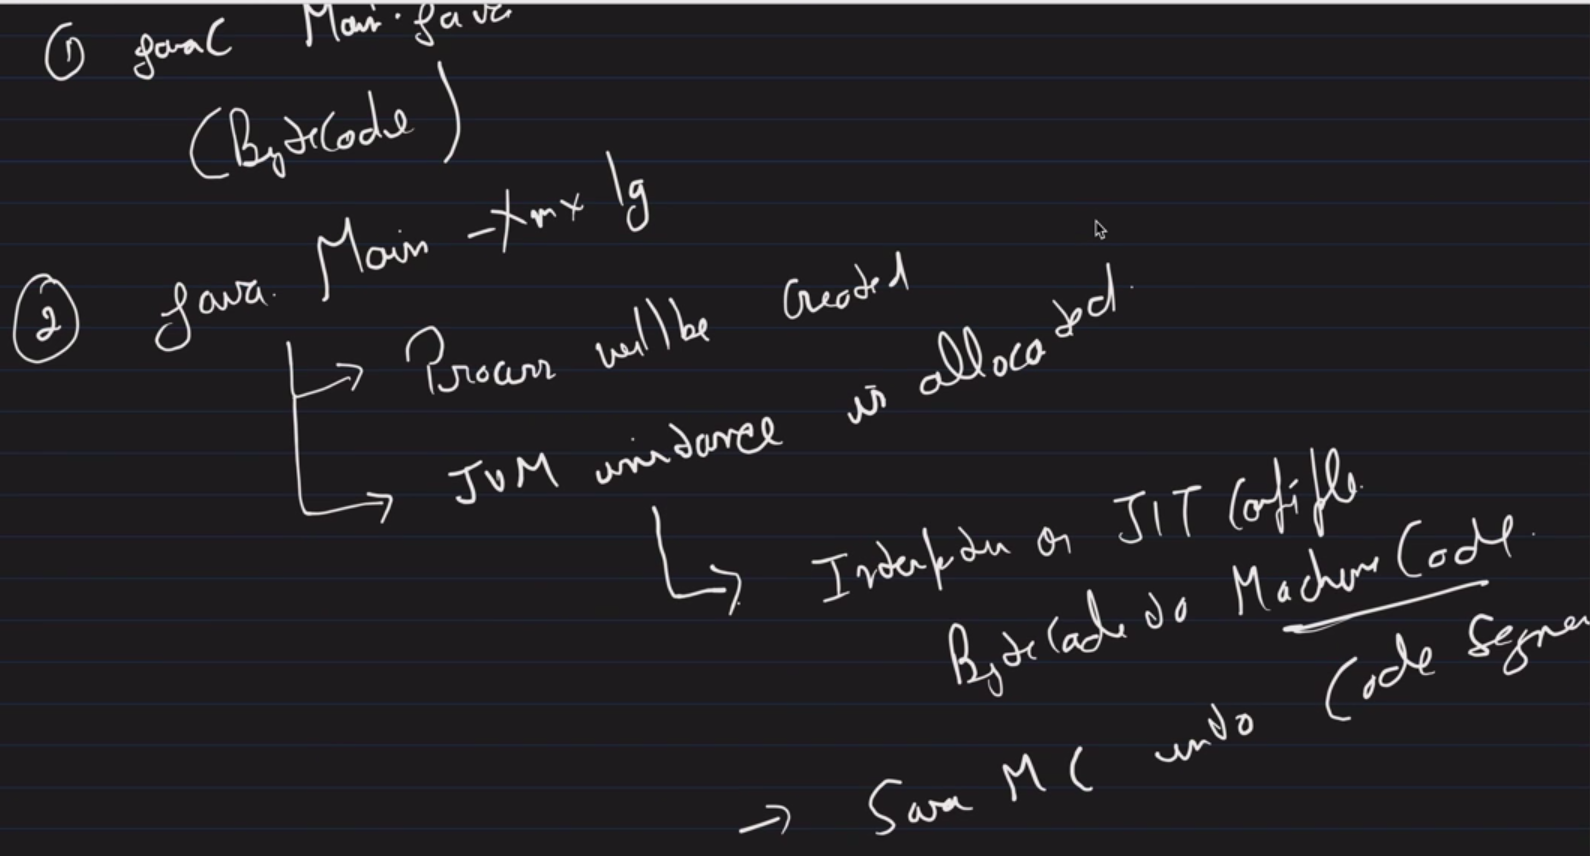 ① javac Main.java
(ByteCode)
② java Main -Xmx 1g
Process will be created
JVM instance is allocated.
Interpreter or JIT Compile
ByteCode to Machine Code.
→ Save MC into Code Segmen